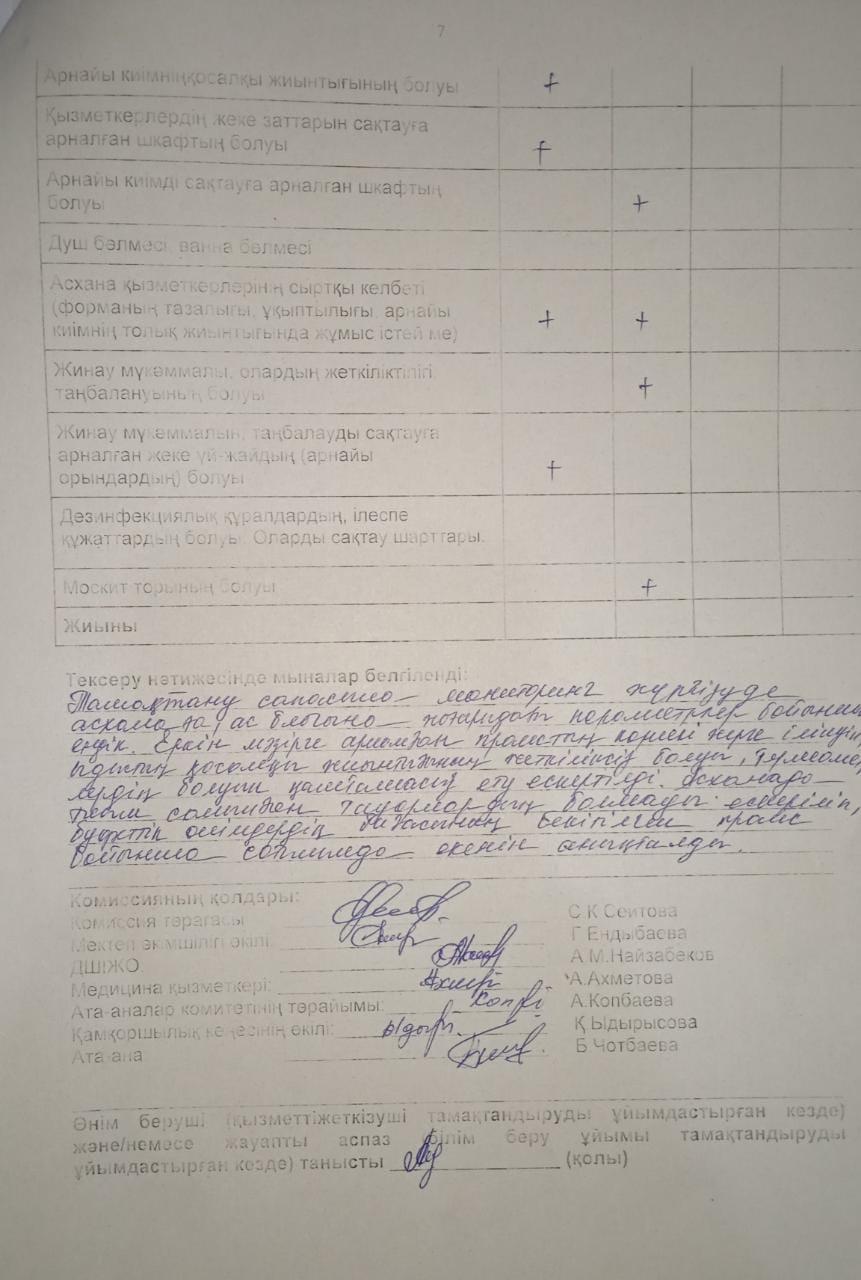 7
Арнайы киімніңқосалқы жиынтығының болуы +
Қызметкерлердің жеке заттарын сақтауға
арналған шкафтың болуы +
Арнайы киімді сақтауға арналған шкафтың
болуы +
Душ бөлмесі, ванна бөлмесі
Асхана қызметкерлерінің сыртқы келбеті
(форманың тазалығы, ұқыптылығы, арнайы + +
киімнің толық жиынтығында жұмыс істей ме)
Жинау мүкәммалы, олардың жеткіліктілігі,
таңбалануының болуы +
Жинау мүкәммалын, таңбалауды сақтауға
арналған жеке үй-жайдың (арнайы
орындардың) болуы +
Дезинфекциялық құралдардың, ілеспе
құжаттардың болуы. Оларды сақтау шарттары.
Москит торының болуы +
Жиыны
Тексеру нәтижесінде мыналар белгіленді:
Тамақтану сапасына мониторинг жүргізуде
асханада, ас блогына жоғарыдағы параметрлер бойынша
Еркін мәзірге арналған прайстың көрнекі жерге ілінуін,
ыдыстың қосалқы жиынтығының жеткіліксіз болуы,
болуын қамтамасыз ету ескертілді. Асханада
тауарлардың болмауы ескеріліп,
буфеттік өнімдердің бағасының бекітілген прайс
бойынша сатылымда екенін анықталды.
Комиссияның қолдары:
Комиссия төрағасы С.К.Сеитова
Мектеп әкімшілігі өкілі Г.Ендыбаева
ДШІЖО А.М.Найзабеков
Медицина қызметкері: А.Ахметова
Ата-аналар комитетінің төрайымы: А.Копбаева
Қамқоршылық кеңесінің өкілі: Ыдыр Қ.Ыдырысова
Ата-ана Б.Чотбаева
Өнім беруші (қызметтіжеткізуші тамақтандыруды ұйымдастырған кезде)
және/немесе жауапты аспаз білім беру ұйымы тамақтандыруды
ұйымдастырған кезде) танысты (қолы)